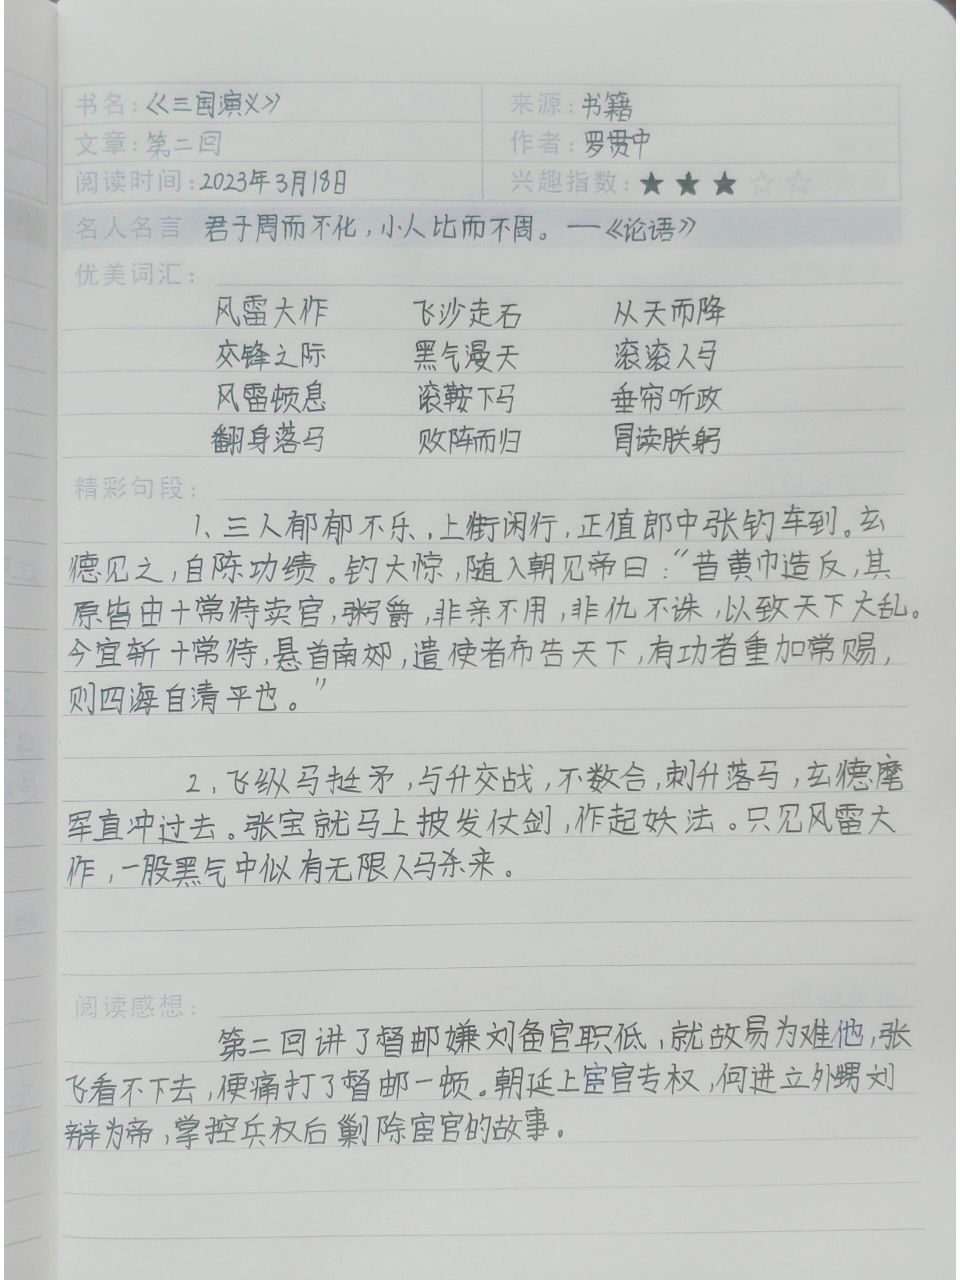 书名:《三国演义》 来源:书籍
文章:第二回 作者:罗贯中
阅读时间:2023年3月18日 兴趣指数:★★★☆☆
名人名言 君子周而不化,小人比而不周。—《论语》
优美词汇:
风雷大作 飞沙走石 从天而降
交锋之际 黑气漫天 滚滚人马
风雷顿息 滚鞍下马 垂帘听政
翻身落马 败阵而归 冒读朕躬
精彩句段:
1、三人郁郁不乐,上街闲行,正值郎中张钧车到。玄
德见之,自陈功绩。钧大惊,随入朝见帝曰:“昔黄巾造反,其
原皆由十常侍卖官,鬻爵,非亲不用,非仇不诛,以致天下大乱。
今宜斩十常侍,悬首南郊,遣使者布告天下,有功者重加常赐,
则四海自清平也。”
2、飞纵马挺矛,与升交战,不数合,刺升落马,玄德麾
军直冲过去。张宝就马上披发仗剑,作起妖法。只见风雷大
作,一股黑气中似有无限人马杀来。
阅读感想:
第二回讲了督邮嫌刘备官职低,就故易为难他,张
飞看不下去,便痛打了督邮一顿。朝廷上宦官专权,何进立外甥刘
辩为帝,掌控兵权后剿除宦官的故事。